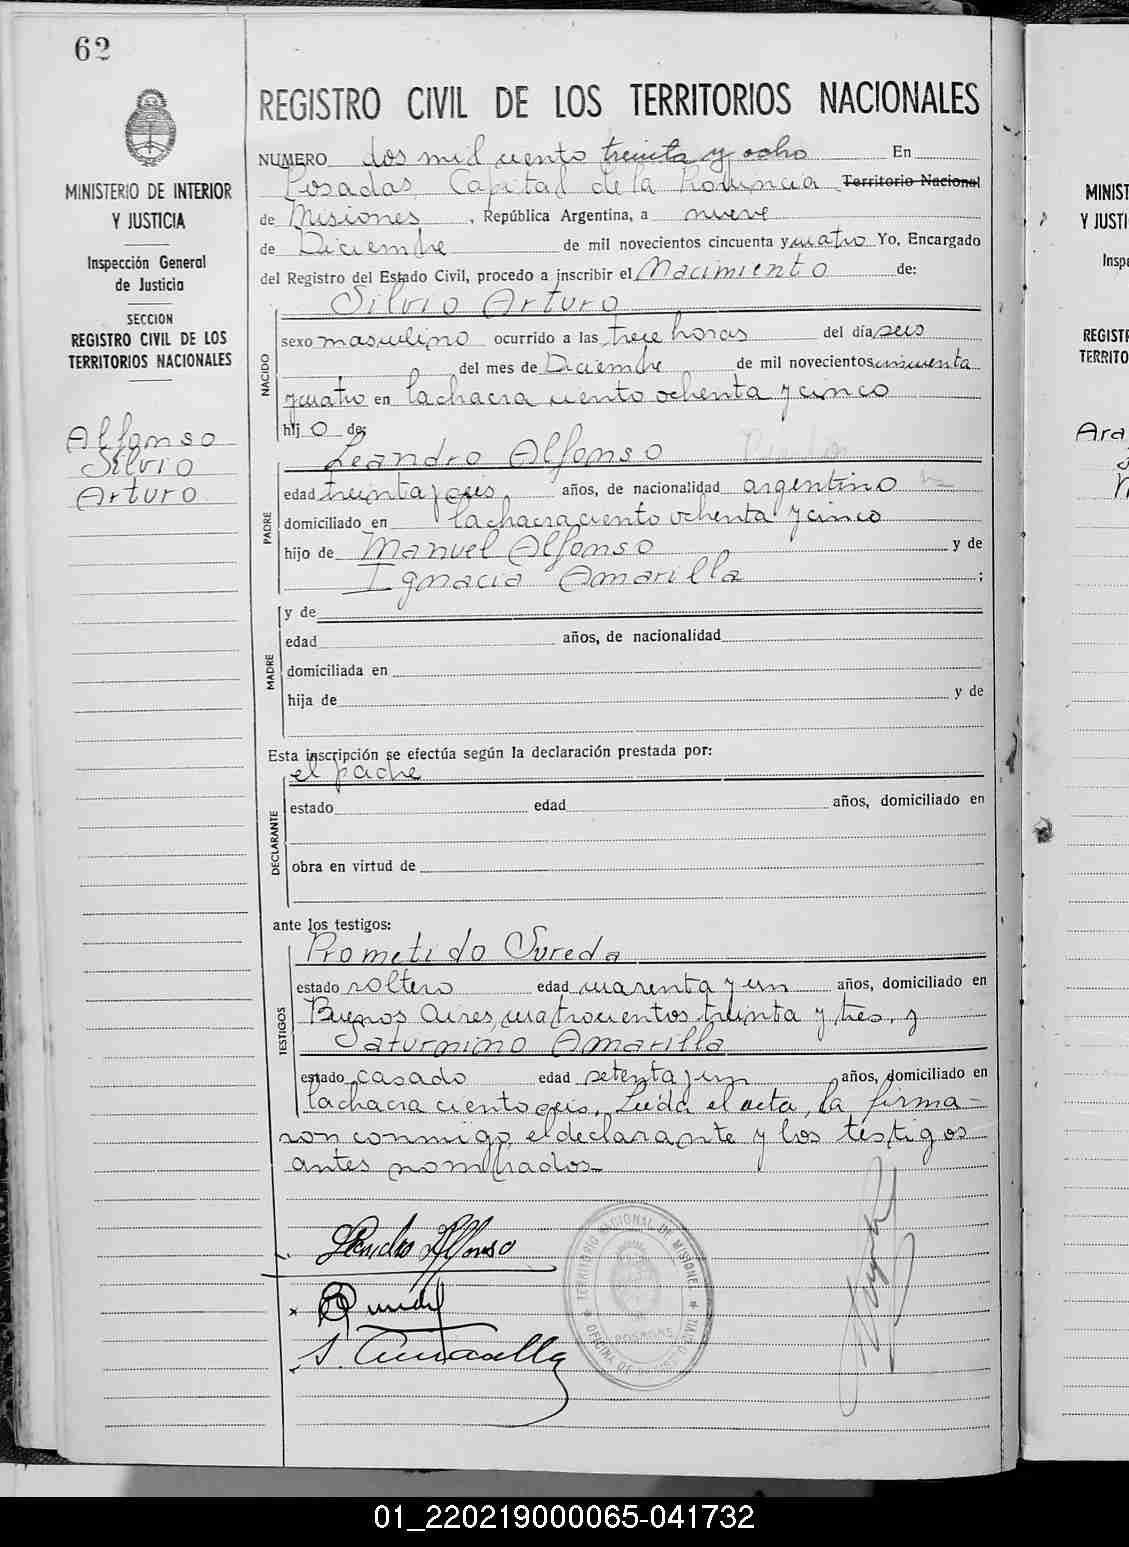 62
REGISTRO CIVIL DE LOS TERRITORIOS NACIONALES
MINISTERIO DE INTERIOR
Y JUSTICIA
Inspección General
de Justicia
SECCION
REGISTRO CIVIL DE LOS
TERRITORIOS NACIONALES
Alfonso
Silvio
Arturo
NUMERO dos mil ciento treinta y ocho En
Posadas, Capital de la Provincia Territorio Nacional
de Misiones, República Argentina, a nueve
de Diciembre de mil novecientos cincuenta y cuatro Yo, Encargado
del Registro del Estado Civil, procedo a inscribir el Nacimiento de:
Silvio Arturo
NACIDO
sexo masculino ocurrido a las trece horas del día seis
del mes de Diciembre de mil novecientos cincuenta
y cuatro en la chacra ciento ochenta y cinco
hijo de:
Leandro Alfonso
PADRE
edad treinta y seis, años, de nacionalidad argentino
domiciliado en la chacra ciento ochenta y cinco
hijo de Manuel Alfonso y de
Ignacia Amarilla ;
MADRE
y de
edad años, de nacionalidad
domiciliada en
hija de y de
Esta inscripción se efectúa según la declaración prestada por:
el padre
DECLARANTE
estado edad años, domiciliado en
obra en virtud de
ante los testigos:
Prometido Sureda
TESTIGOS
estado soltero edad cuarenta y un años, domiciliado en
Buenos Aires, cuatrocientos treinta y tres, y
Saturnino Amarilla
estado casado edad setenta y un años, domiciliado en
la chacra ciento seis. Leída el acta, la firma-
ron conmigo, el declarante y los testigos
antes nombrados.
Leandro Alfonso
S. Amarilla
TERRITORIO NACIONAL DE MISIONES
POSADAS
MINIST
Y JUSTI
Inspe
REGISTR
TERRITO
Ara
01_220219000065-041732